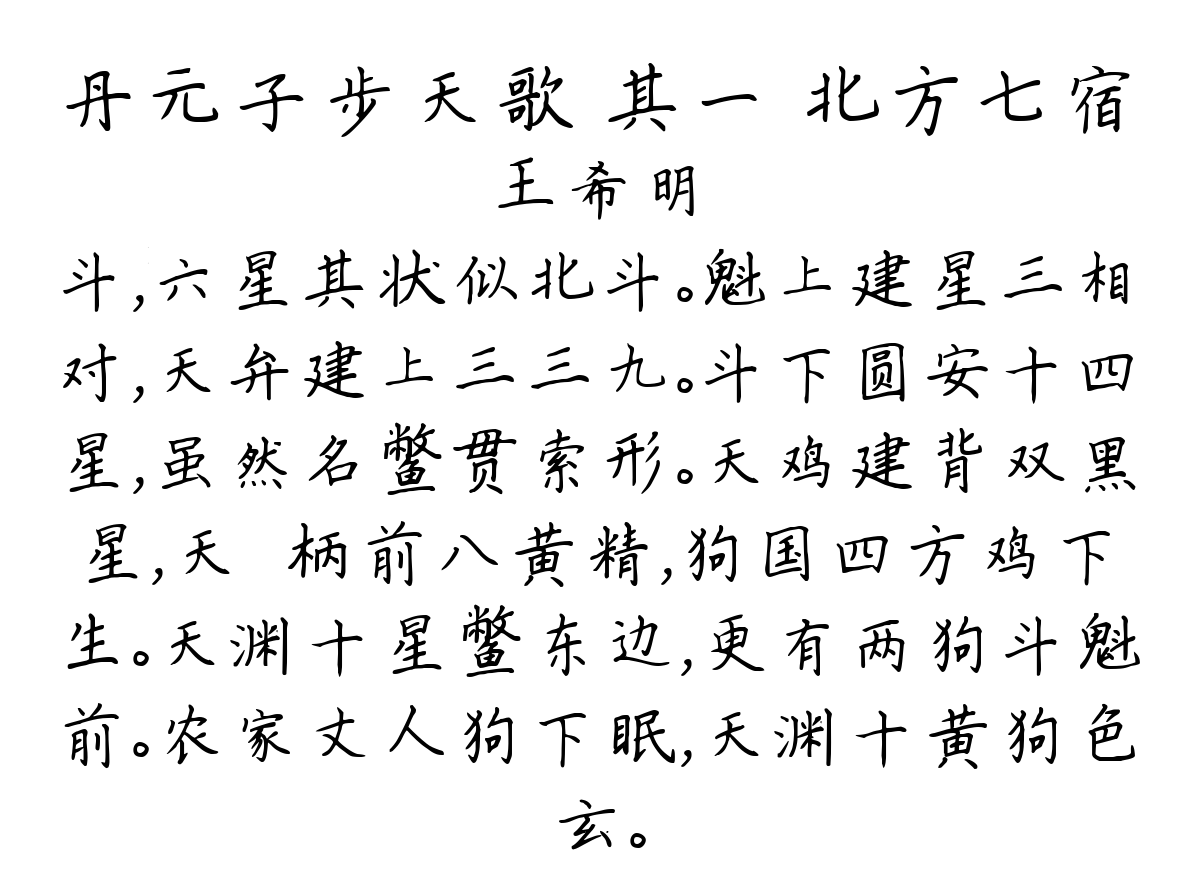 丹元子步天歌 其一 北方七宿
王希明
斗,六星其状似北斗。魁上建星三相
对,天弁建上三三九。斗下圆安十四
星,虽然名鳖贯索形。天鸡建背双黑
星,天 柄前八黄精,狗国四方鸡下
生。天渊十星鳖东边,更有两狗斗魁
前。农家丈人狗下眠,天渊十黄狗色
玄。